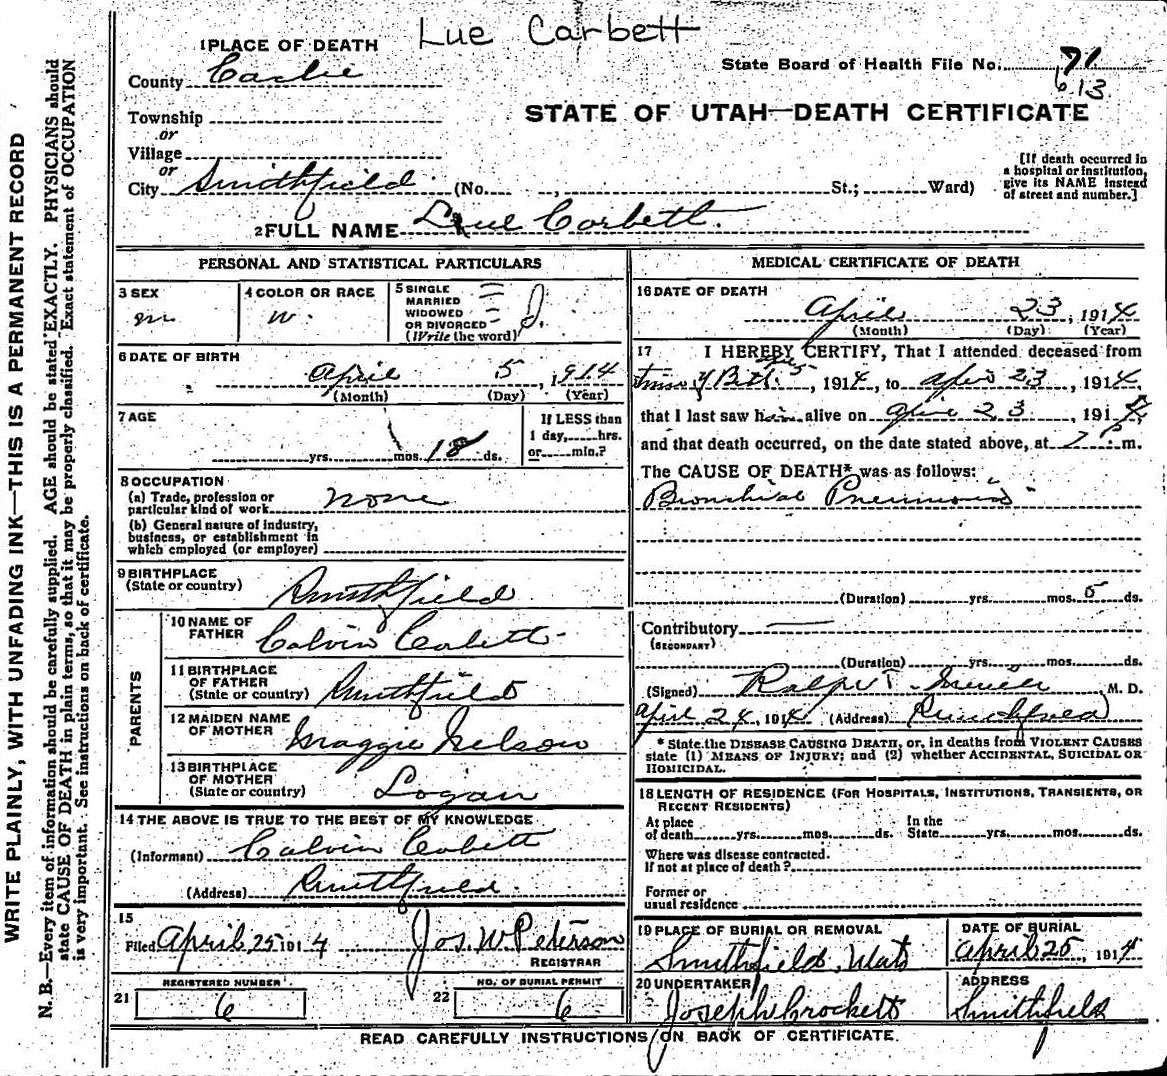 Lue Carbett
1 PLACE OF DEATH
County Cache
State Board of Health File No. 71
613
STATE OF UTAH—DEATH CERTIFICATE
Township
or
Village
or
City Smithfield (No. , St.; Ward)
[If death occurred in
a hospital or institution,
give its NAME instead
of street and number.]
2 FULL NAME Lue Corbett.
PERSONAL AND STATISTICAL PARTICULARS
3 SEX
m
4 COLOR OR RACE
w.
5 SINGLE
MARRIED
WIDOWED
OR DIVORCED
(Write the word)
6 DATE OF BIRTH
April 5, 1914
(Month) (Day) (Year)
7 AGE
yrs. mos. 18 ds.
If LESS than
1 day, hrs.
or min.?
8 OCCUPATION
(a) Trade, profession or
particular kind of work none
(b) General nature of industry,
business, or establishment in
which employed (or employer)
9 BIRTHPLACE
(State or country) Smithfield
PARENTS
10 NAME OF
FATHER Calvin Corbett
11 BIRTHPLACE
OF FATHER
(State or country) Smithfield
12 MAIDEN NAME
OF MOTHER Maggie Nelson
13 BIRTHPLACE
OF MOTHER
(State or country) Logan
14 THE ABOVE IS TRUE TO THE BEST OF MY KNOWLEDGE
(Informant) Calvin Corbett
(Address) Smithfield.
15
Filed April 25 1914 Jos. W. Peterson
REGISTRAR
REGISTERED NUMBER
21 6
NO. OF BURIAL PERMIT
22 6
MEDICAL CERTIFICATE OF DEATH
16 DATE OF DEATH
April 23, 1914
(Month) (Day) (Year)
17 I HEREBY CERTIFY, That I attended deceased from
5, 1914, to April 23, 1914,
that I last saw him alive on April 23, 1914,
and that death occurred, on the date stated above, at 7 P. m.
The CAUSE OF DEATH* was as follows:
Bronchial Pneumonia
(Duration) yrs. mos. 5 ds.
Contributory
(SECONDARY)
(Duration) yrs. mos. ds.
(Signed) Ralph T. M. D.
April 24, 1914 (Address) Smithfield
* State the DISEASE CAUSING DEATH, or, in deaths from VIOLENT CAUSES
state (1) MEANS OF INJURY; and (2) whether ACCIDENTAL, SUICIDAL OR
HOMICIDAL.
18 LENGTH OF RESIDENCE (FOR HOSPITALS, INSTITUTIONS, TRANSIENTS, OR
RECENT RESIDENTS)
At place
of death yrs. mos. ds.
In the
State yrs. mos. ds.
Where was disease contracted.
If not at place of death?
Former or
usual residence
19 PLACE OF BURIAL OR REMOVAL
Smithfield, Utah
DATE OF BURIAL
April 25, 1914
20 UNDERTAKER
Joseph Crockett
ADDRESS
Smithfield
READ CAREFULLY INSTRUCTIONS ON BACK OF CERTIFICATE.
WRITE PLAINLY, WITH UNFADING INK—THIS IS A PERMANENT RECORD
N. B.—Every item of information should be carefully supplied. AGE should be stated EXACTLY. PHYSICIANS should
state CAUSE OF DEATH in plain terms, so that it may be properly classified. Exact statement of OCCUPATION
is very important. See instructions on back of certificate.